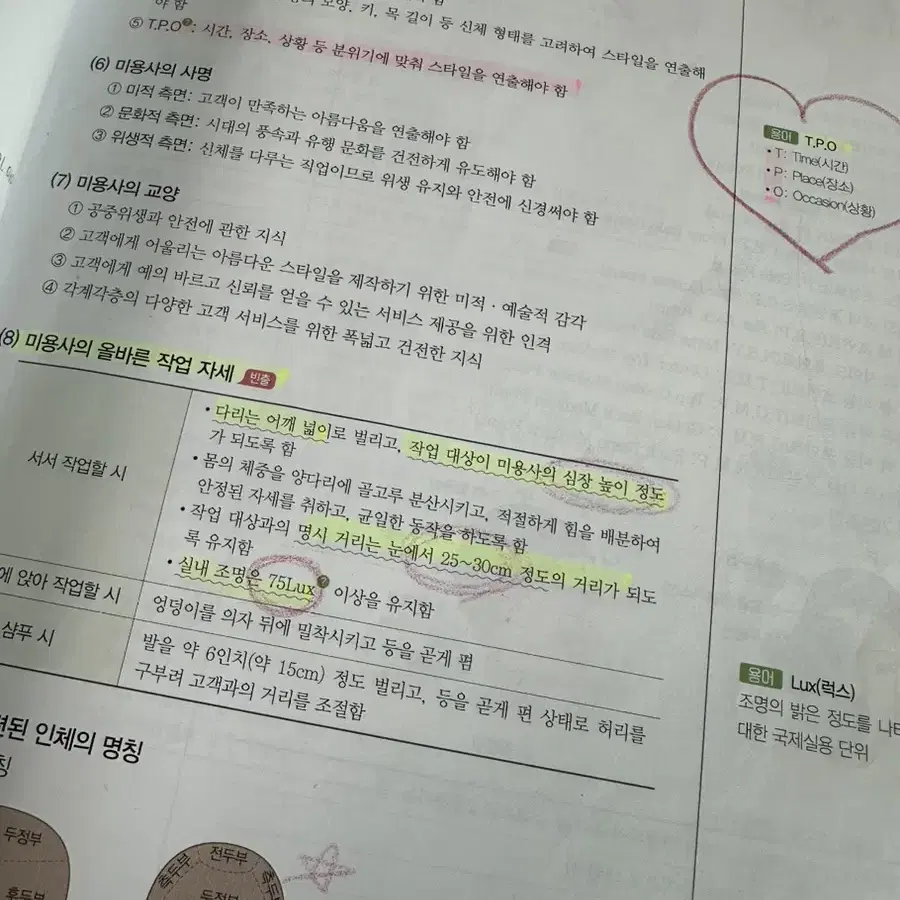 야 함
모양, 키, 목 길이 등 신체 형태를 고려하여 스타일을 연출해
⑤ T.P.O: 시간, 장소, 상황 등 분위기에 맞춰 스타일을 연출해야 함
(6) 미용사의 사명
① 미적 측면: 고객이 만족하는 아름다움을 연출해야 함
② 문화적 측면: 시대의 풍속과 유행 문화를 건전하게 유도해야 함
③ 위생적 측면: 신체를 다루는 직업이므로 위생 유지와 안전에 신경써야 함
(7) 미용사의 교양
① 공중위생과 안전에 관한 지식
② 고객에게 어울리는 아름다운 스타일을 제작하기 위한 미적·예술적 감각
③ 고객에게 예의 바르고 신뢰를 얻을 수 있는 서비스 제공을 위한 인격
④ 각계각층의 다양한 고객 서비스를 위한 폭넓고 건전한 지식
(8) 미용사의 올바른 작업 자세 빈출
서서 작업할 시
• 다리는 어깨 넓이로 벌리고, 작업 대상이 미용사의 심장 높이 정도
가 되도록 함
• 몸의 체중을 양다리에 골고루 분산시키고, 적절하게 힘을 배분하여
안정된 자세를 취하고, 균일한 동작을 하도록 함
• 작업 대상과의 명시 거리는 눈에서 25~30cm 정도의 거리가 되도
록 유지함
• 실내 조명은 75Lux 이상을 유지함
에 앉아 작업할 시
엉덩이를 의자 뒤에 밀착시키고 등을 곧게 폄
샴푸 시
발을 약 6인치(약 15cm) 정도 벌리고, 등을 곧게 편 상태로 허리를
구부려 고객과의 거리를 조절함
련된 인체의 명칭
칭
두정부
후두부
측두부
전두부
측두부
두정부
용어 T.P.O
• T: Time(시간)
• P: Place(장소)
• O: Occasion(상황)
용어 Lux(럭스)
조명의 밝은 정도를 나타
대한 국제실용 단위